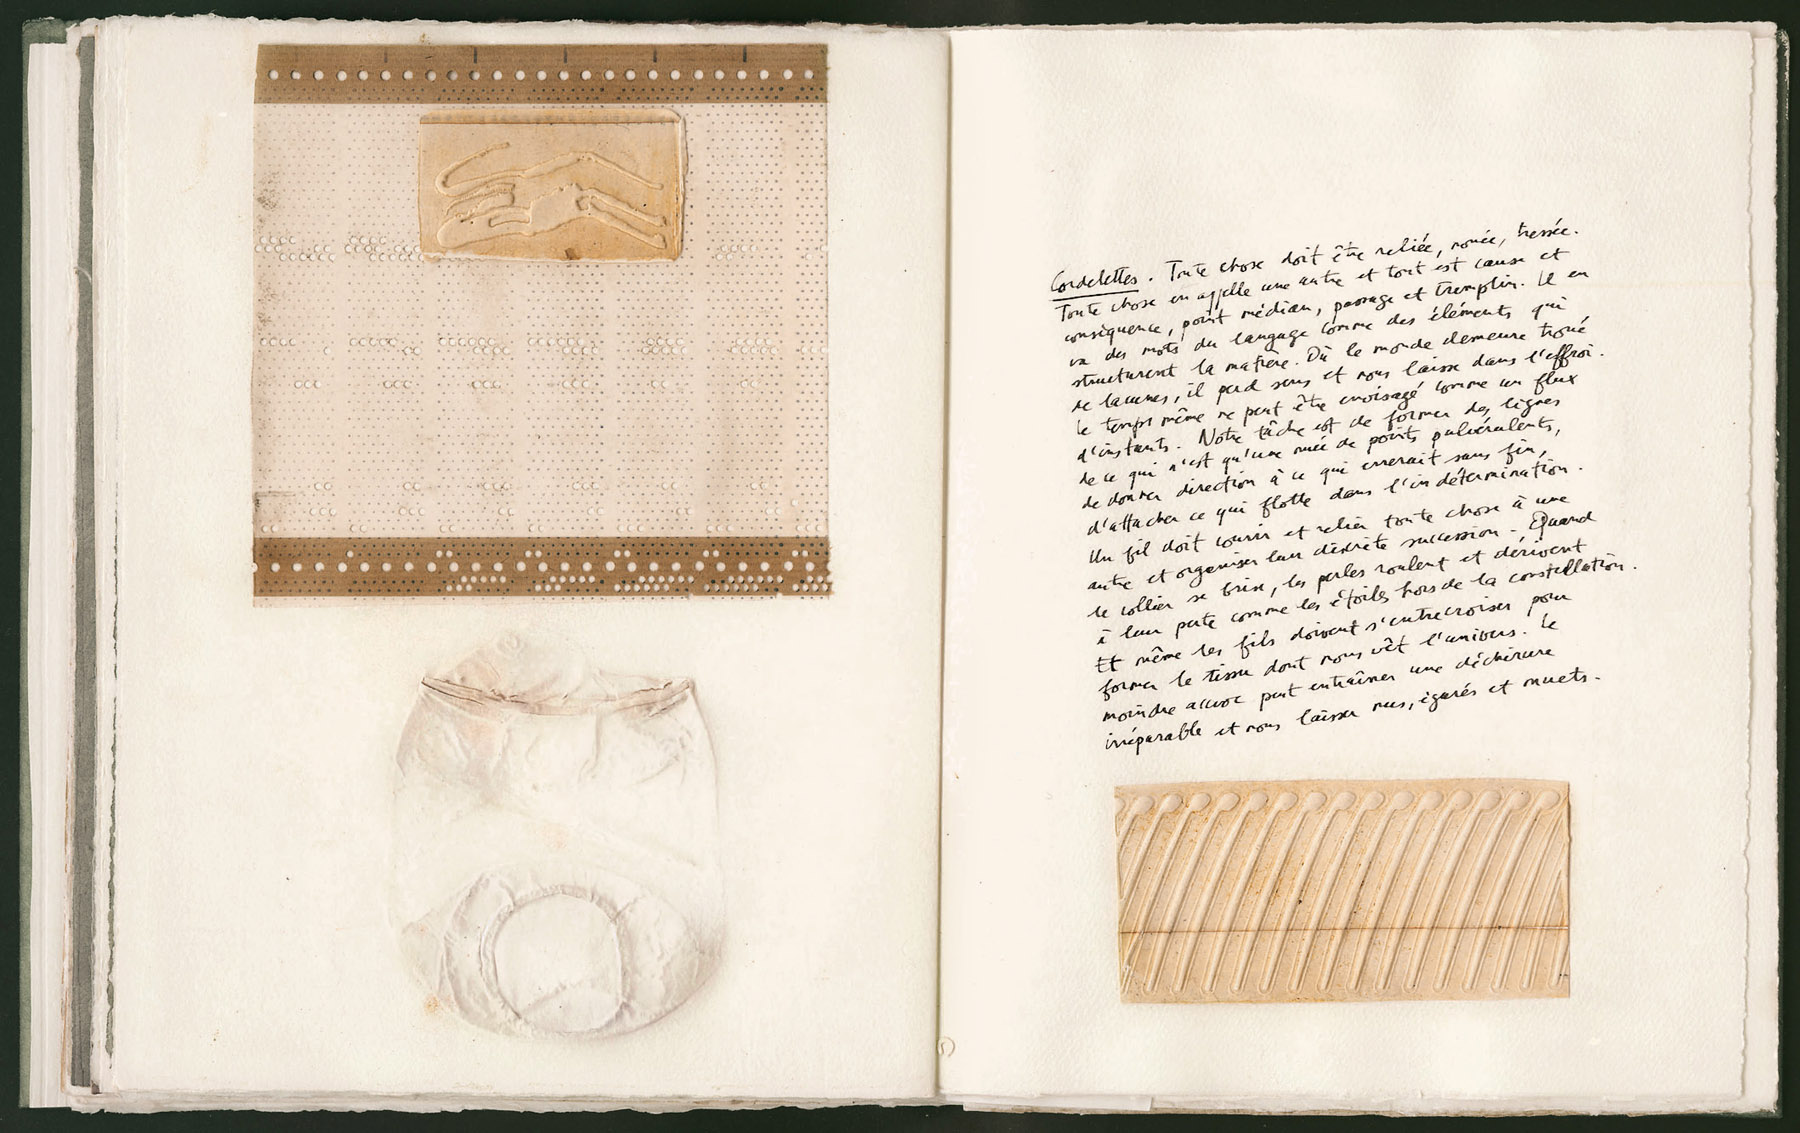 Cordelettes. Toute chose doit être reliée, nouée, tressée.
Toute chose en appelle une autre et tout est cause et
conséquence, point médian, passage et tremplin. Il en
va des mots du langage comme des éléments qui
structurent la matière. Où le monde demeure troué
de lacunes, il perd sens et nous laisse dans l'effroi.
Le temps même ne peut être envisagé comme un flux
d'instants. Notre tâche est de former des lignes
de ce qui n'est qu'une nuée de points pulvérulents,
de donner direction à ce qui errerait sans fin,
d'attacher ce qui flotte dans l'indétermination.
Un fil doit courir et relier toute chose à une
autre et organiser leur discrète succession. Quand
le collier se brise, les perles roulent et dérivent
à leur perte comme les étoiles hors de la constellation.
Et même les fils doivent s'entrecroiser pour
former le tissu dont nous vêt l'univers. Le
moindre accroc peut entraîner une déchirure
irréparable et nous laisser nus, égarés et muets.